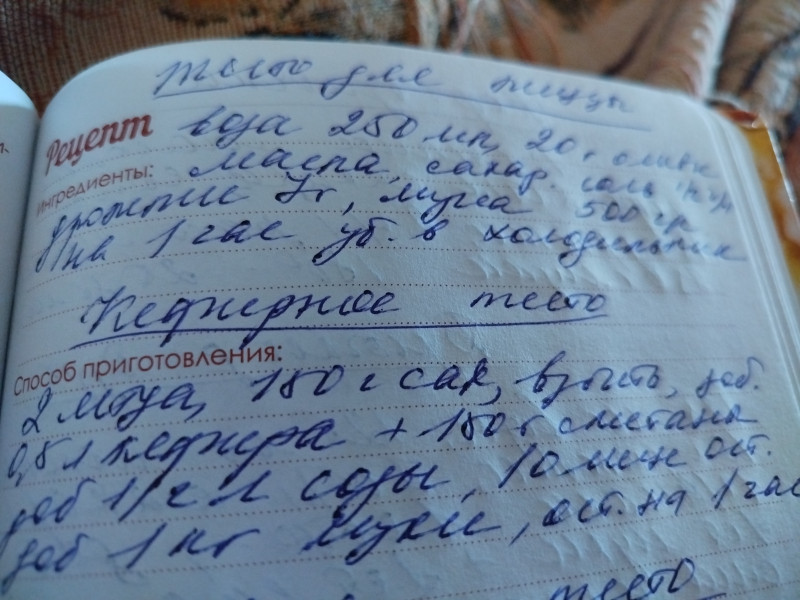 Тесто для пиццы
Рецепт вода 250 мл, 20 г оливк
Ингредиенты: масла, сахар. соль
дрожжи 7г, мука 500 гр
на 1 час уб. в холодильник
Кефирное тесто
Способ приготовления:
2 яйца, 150 г сах, взбить, доб.
0,5 л кефира + 150 г сметаны
доб 1/2 л соды, 10 мин ост.
доб 1 кг муки, ост. на 1 час
тесто